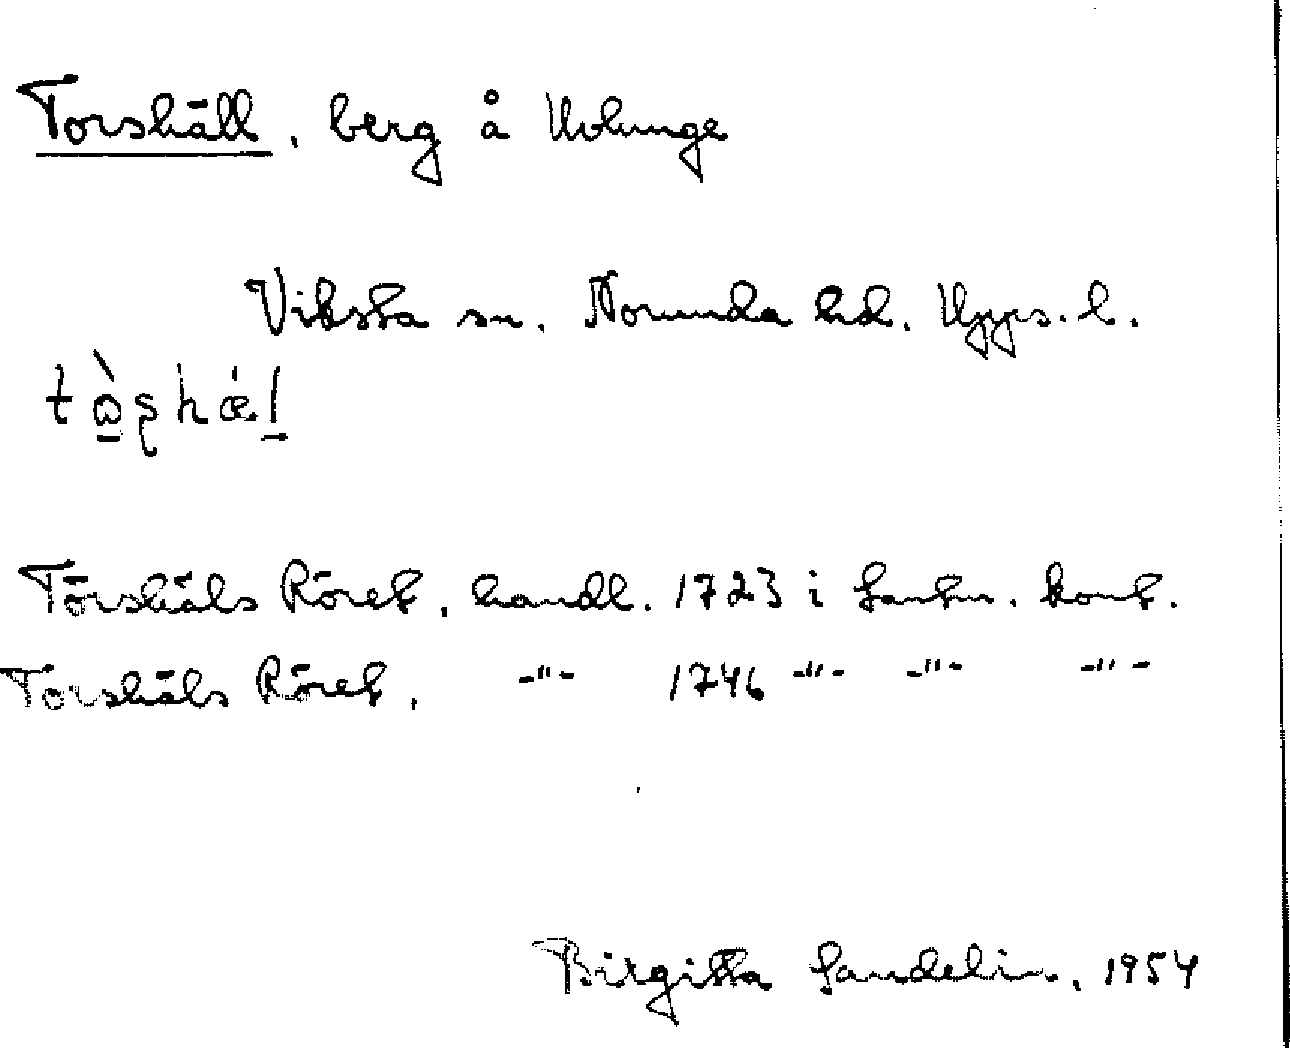 Torshäll, berg å Uvlunge
Viksta sn. Norunda hd. Upps. l.
tὼ̱ʂhǽḻ
Törshäls Röret, handl. 1723 i Lantm. kont.
Torshäls Röret, -"- 1746 -"- -"- -"-
Birgitta Landelin, 1954